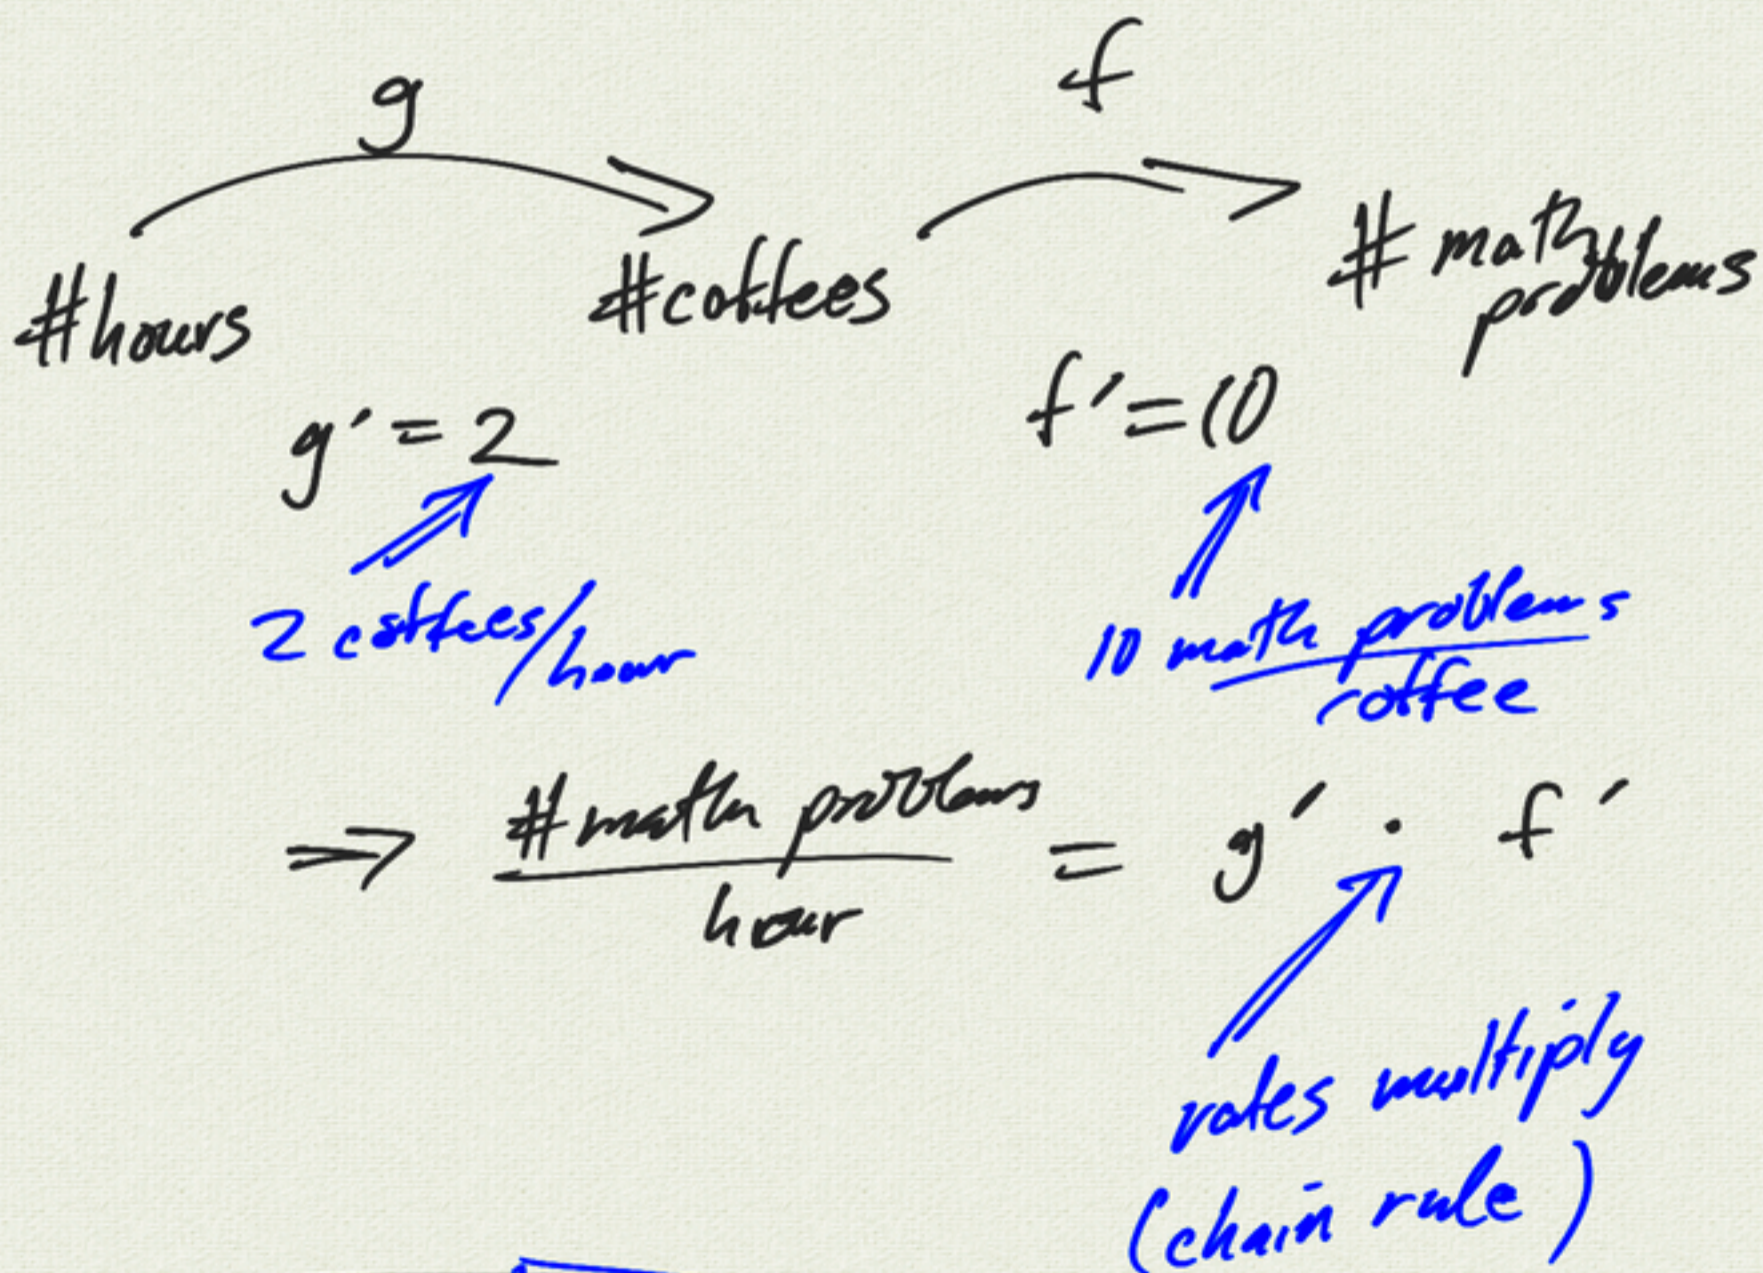 g
f
#hours
#coffees
# math
problems
g' = 2
f' = 10
2 coffees/hour
10 math problems
coffee
⇒ #math problems
hour
= g' · f'
rates multiply
(chain rule)